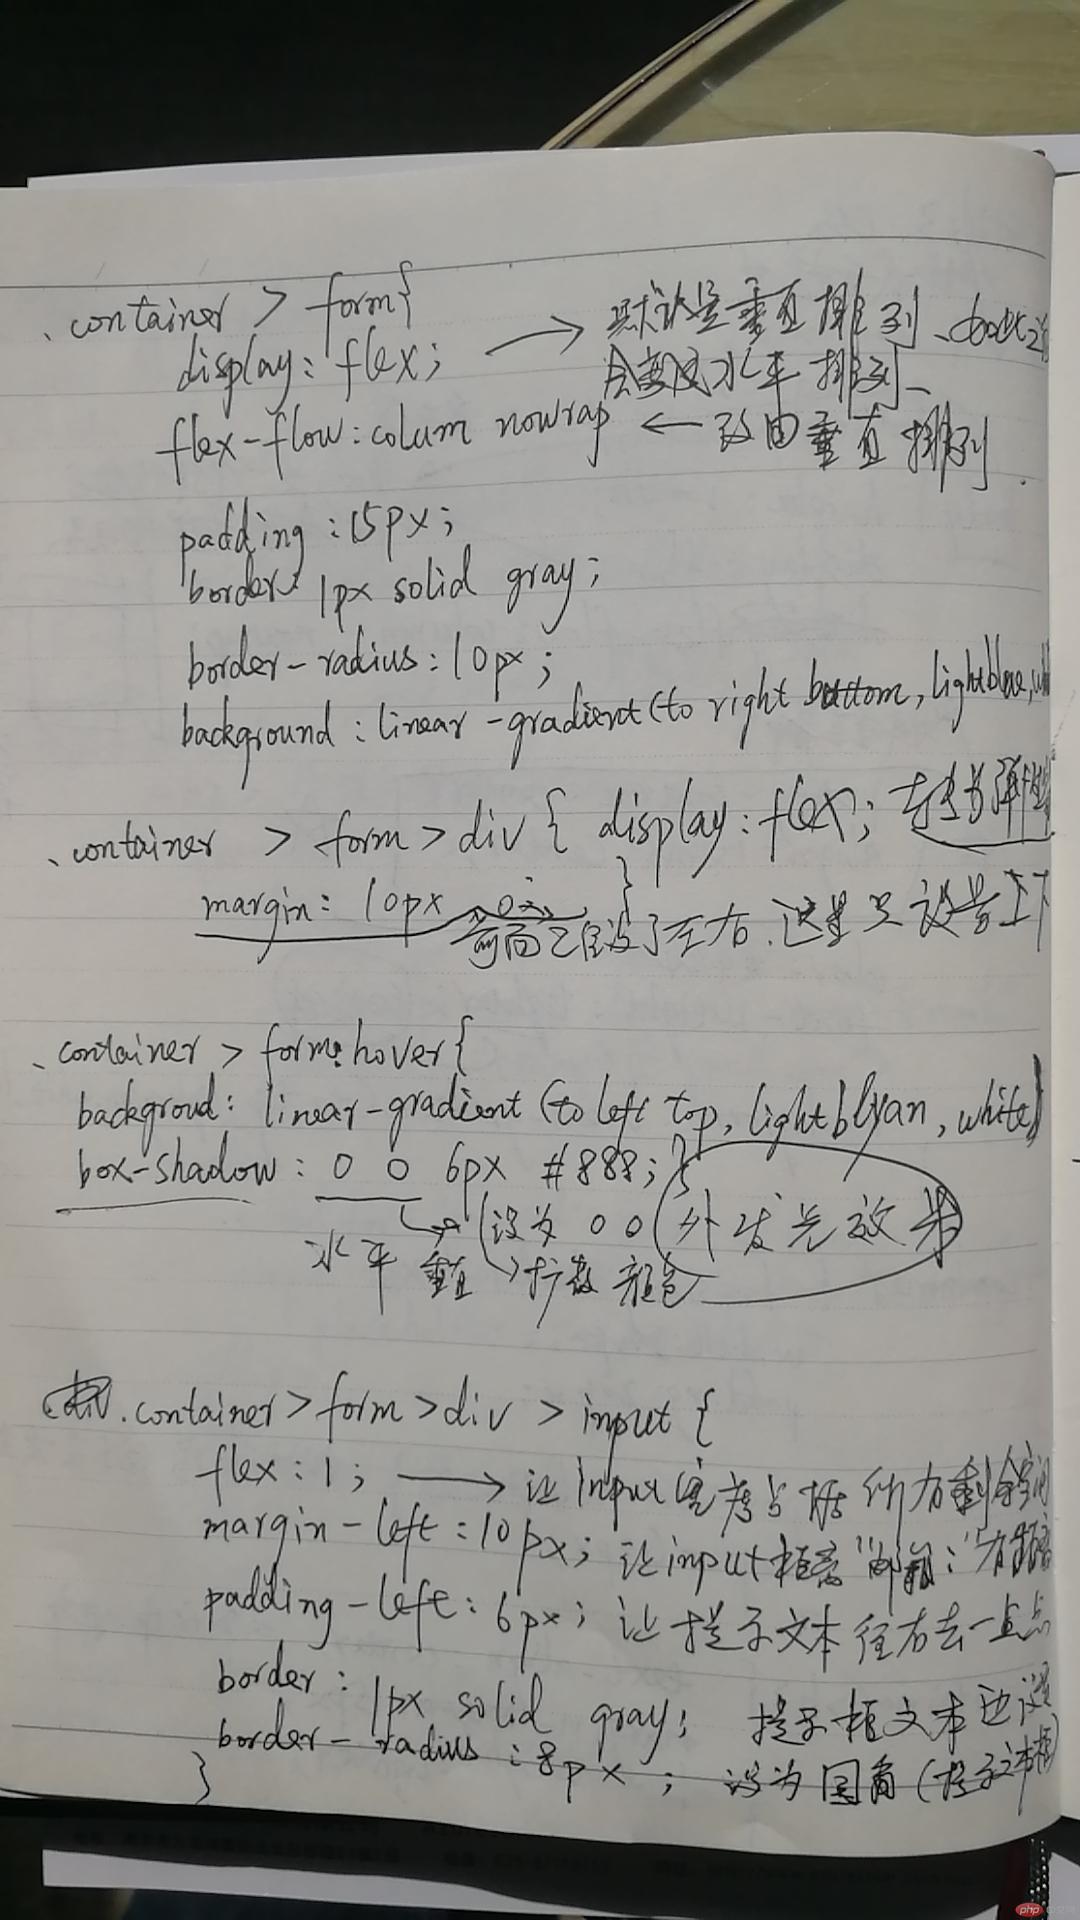 .container > form{
display: flex; → 默认是垂直排列、
会变成水平排列、
flex-flow:colum nowrap ← 改由垂直排列.
padding:15px;
border: 1px solid gray;
border-radius:10px;
background:linear-gradient(to right bottom, lightblue,
.container > form>div { display:flex; 转为弹性
margin: 10px 0; }
前面已经设了左右.这里只设置上下
.container > form:hover{
backgroud: linear-gradient (to left top, lightblyan, white)
box-shadow: 0 0 6px #888;}
(设为 0 0 (外发光效果
水平 垂直 → 扩散 颜色
.container>form>div >input {
flex:1; → 让input 占据所有剩余空间
margin-left:10px; 让input框离"邮箱:"有
padding-left: 6px; 让提示文本往右去一点点
border: 1px solid gray; 提示框文本边
border-radius:8px; 设为圆角(提示文本框)
}
php